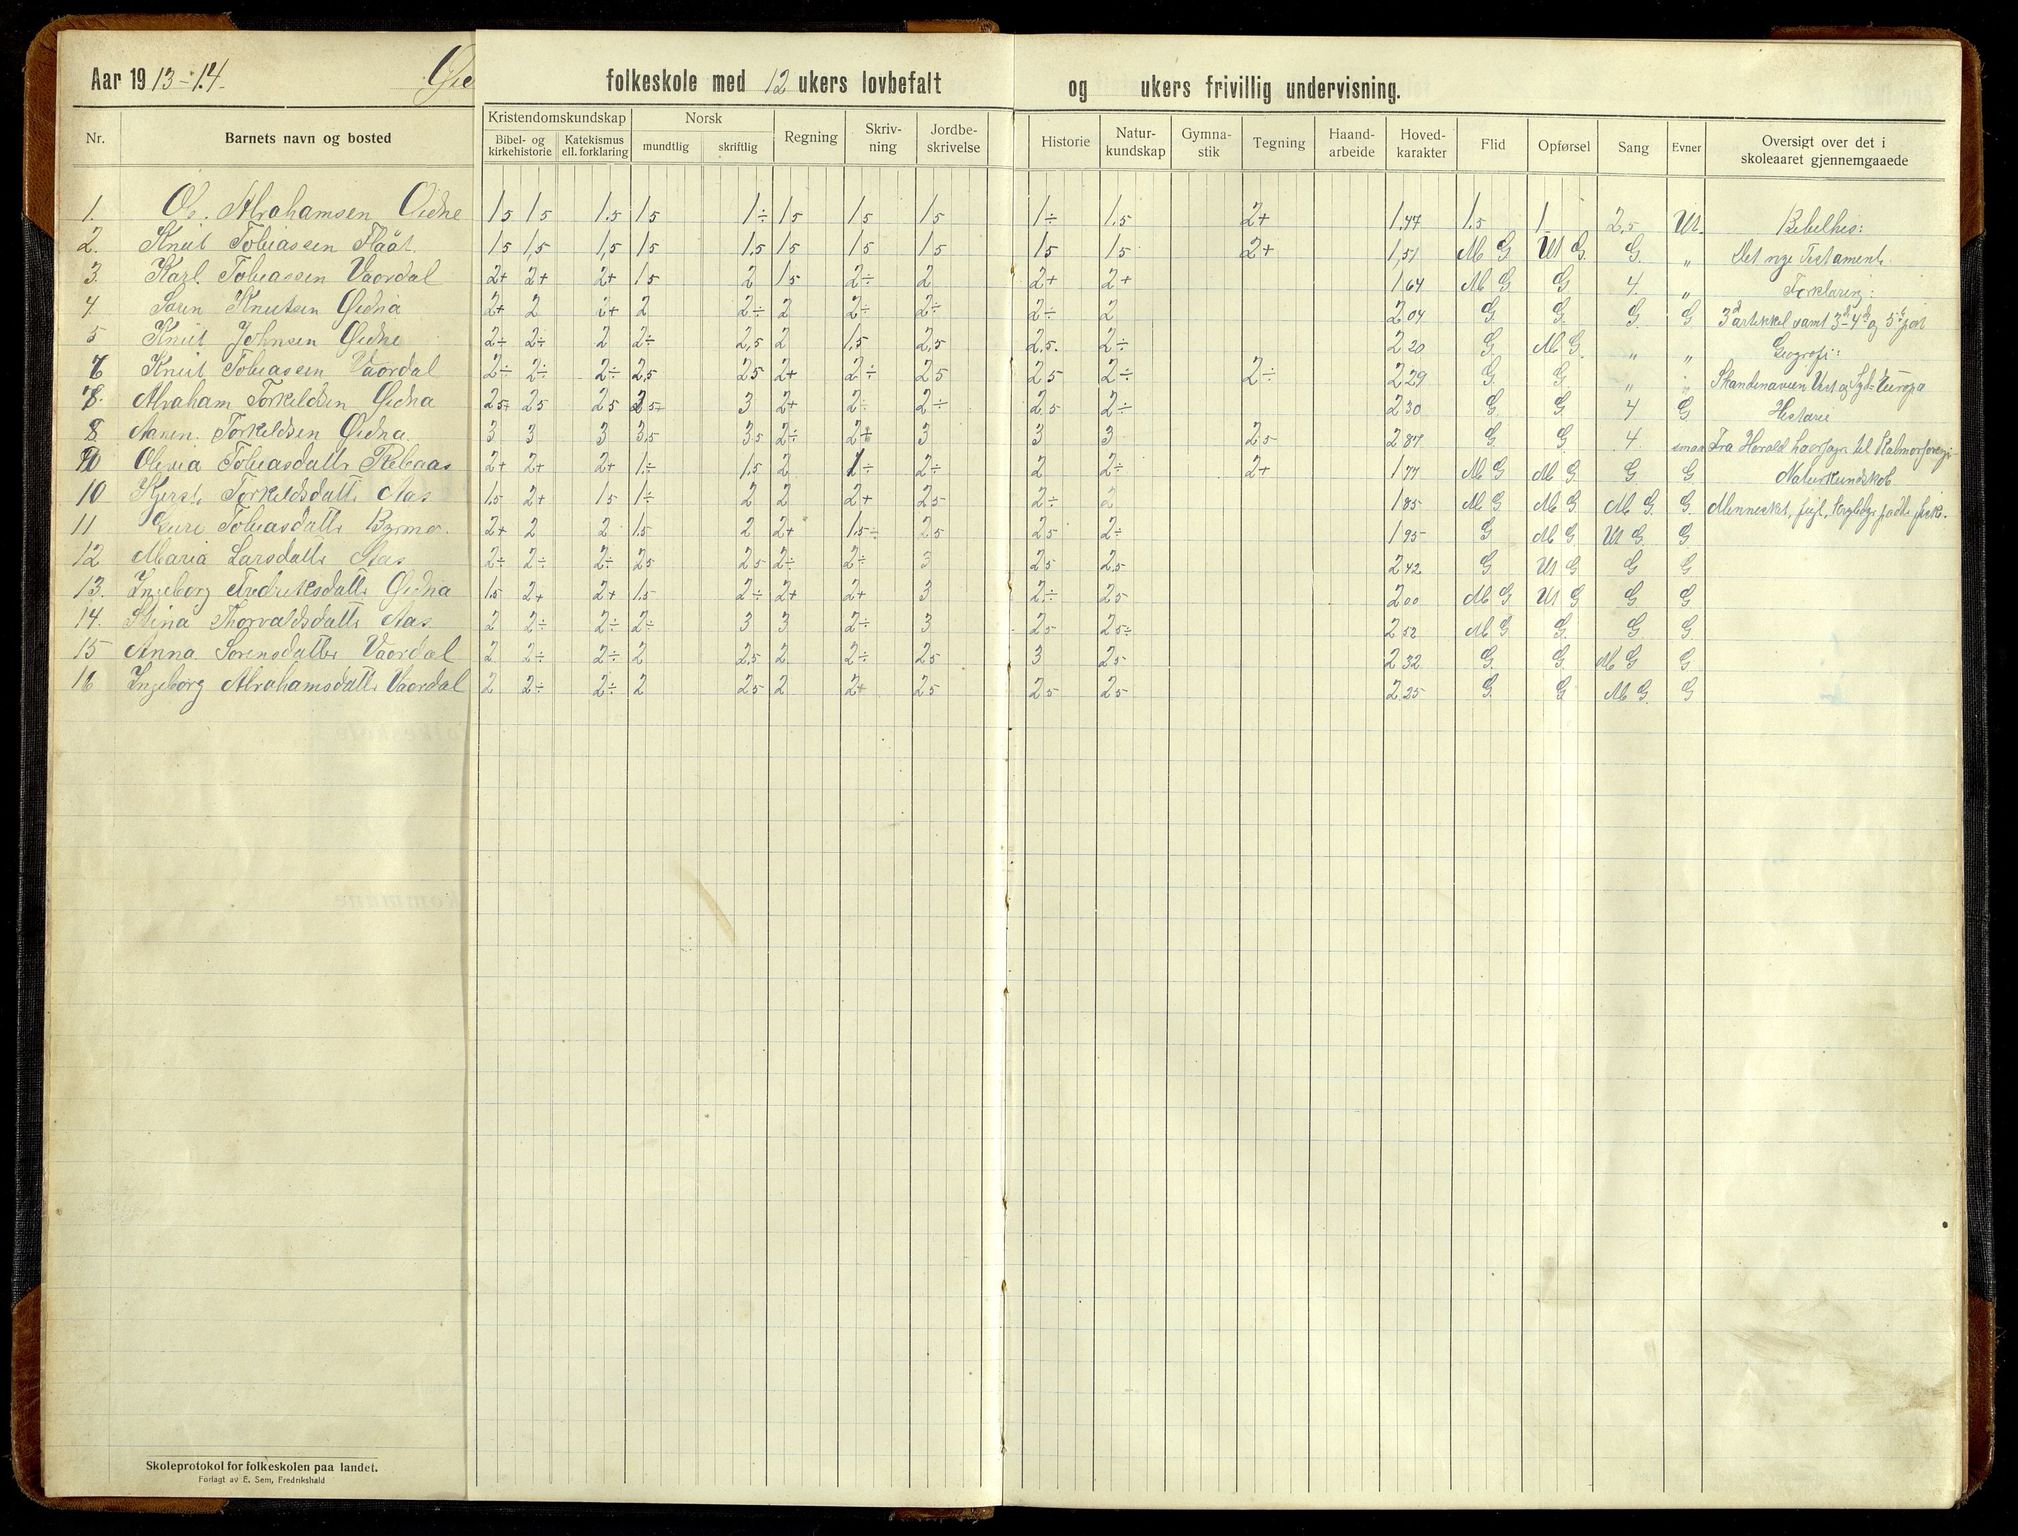 Aar 1913-14. folkeskole med 12 ukers lovbefalt og ukers frivillig undervisning.
Nr. Barnets navn og bosted Kristendomskundskap Bibel- og kirkehistorie Katekismus ell. forklaring Norsk mundtlig skriftlig Regning Skriv-ning Jordbe-skrivelse Historie Natur-kundskap Gymna-stik Tegning Haand-arbeide Hoved-karakter Flid Opførsel Sang Evner Oversigt over det i skoleaaret gjennemgaaede
1. Ol. Abrahamsen Øidne 15 15 1.5 15 1÷ 15 15 15 1÷ 1.5 2+ 1.47 1.5 1 2.5 Ut. Bibelhis:
2. Knut Tobiassen Flaat 15 1,5 1,5 15 1.5 15 15 15 15 15 2+ 1,51 M G. Ut G. G. „ Det nye Testamente.
3. Karl Tobiassen Vaardal 2+ 2+ 2+ 15 2 15 2÷ 2 2+ 2+ 1 64 M G. G 4. „ Forklaring:
4 Søren Knutsen Øidna 2+ 2 2+ 2 2÷ 2 2÷ 2÷ 2÷ 2 2 04 G. G. G G 3d artikkel samt 3d 4d og 5d part
5 Knut Johnsen Øidne 2÷ 2÷ 2 2÷ 2,5 2 1,5 2,5 2.5. 2÷ 2 20 G. M G. „ „ Geografi:
6 Knut Tobiassen Vaardal 2÷ 2÷ 2÷ 2,5 25 2+ 2÷ 25 25 2÷ 2÷ 2 29 G. G. „ „ Skandinavien Vest og Syd-Europa
7. Abraham Torkeldsen Øidna 25+ 25 25 25+ 3 2+ 2÷ 2÷ 25 2÷ 2 30 G. G 4 G Historie
8 Aanen Torkeldsen Øidna 3 3 3 3,5 35 2÷ 2+ 3 3 3 25 2 87 G G 4. smaa Fra Harald Haarfagre til Kalmar
Olevia Tobiasdatter Rebaas 2+ 2+ 2+ 1÷ 1.5 2 1÷ 2÷ 2 2÷ 2+ 1 77 M G M G. G G. Naturkundskab
10 Kjersti Torkeldsdatter Aas 1.5 2+ 15 1÷ 2 2 2+ 25 2÷ 2 1 85 M G M G M G G. Mennesket, fugl, Krybdyr padde fisk.
11 Guri Tobiasdatter Birmo. 2+ 2 2 1.5 2 2+ 1.5÷ 25 25 2÷ 1 95 G M G Ut G. G.
12 Maria Larsdatter Aas 2÷ 2÷ 2÷ 25 25 2÷ 2÷ 3 25 2.5 2 42 G Ut G G G
13. Ingeborg Fredriksdatter Øidna 1.5 2+ 2+ 1.5 2÷ 2+ 2+ 3 2÷ 25 2 00 M G Ut G G G
14. Stina Thorvaldsdatter Aas 2 2÷ 2÷ 2÷ 3 3 2÷ 3 25 25÷ 2 52 M G G. G G
15 Anna Sørensdatter Vaardal 2 2÷ 2÷ 2 2.5 2 2÷ 25 3 25 2 32 G. G. M G G
16 Ingeborg Abrahamsdatter Vaardal 2 2÷ 2÷ 2 25 2 2+ 25 25 25 2.25 G. G M G. G
Skoleprotokol for folkeskolen paa landet.
Forlagt av E. Sem, Fredrikshald